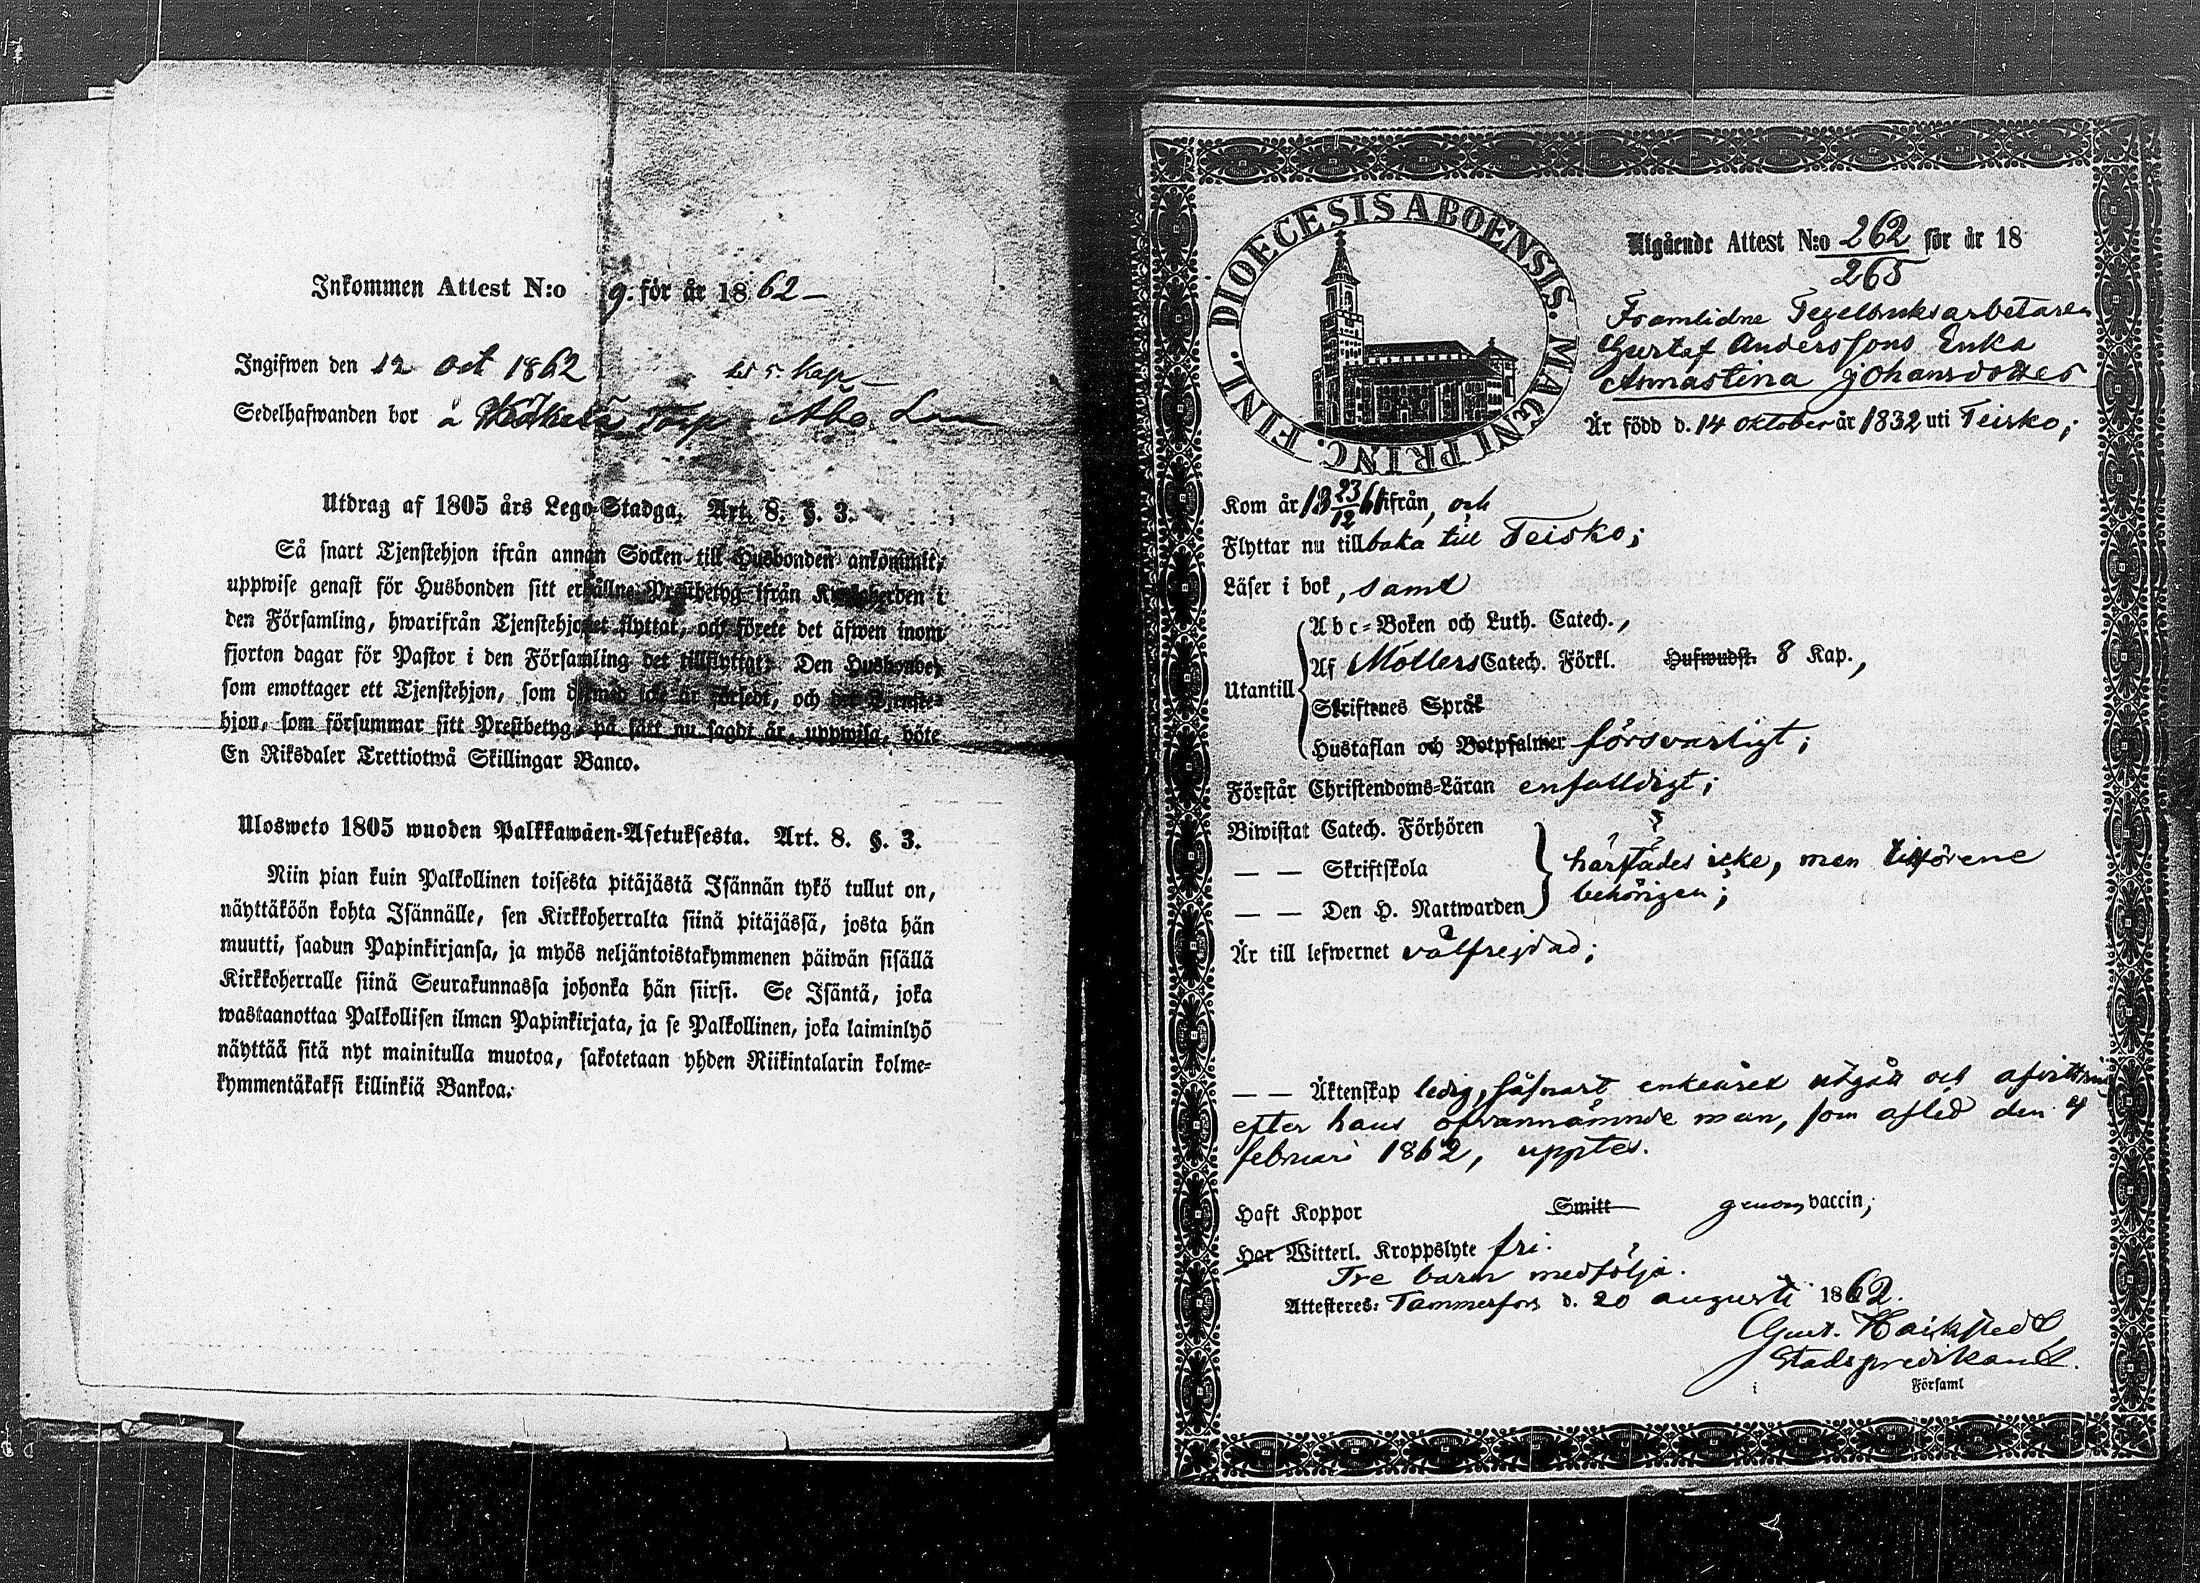 Inkommen Attest N:o 9. för år 1862 –
Ingifwen den 12 Oct 1862
Sedelhafwanden bor å Torp Åbo Län
Utdrag af 1805 års Lego-Stadga. Art. 8. §. 3.
Så snart Tjenstehjon ifrån annan Socken till Husbonden ankommit,
uppwise genast för Husbonden sitt erhållne Prestbetyg ifrån Kyrkoherden i
den Församling, hwarifrån Tjenstehjonet flyttat, och förete det äfwen inom
fjorton dagar för Pastor i den Församling det tillflyttat. Den Husbonde,
som emottager ett Tjenstehjon, som dermed icke är försedt, och det Tjenste-
hjon, som försummar sitt Prestbetyg, på sätt nu sagdt är, uppwisa, böte
En Riksdaler Trettiotwå Skillingar Banco.
Ulosweto 1805 wuoden Palkkawäen-Asetuksesta. Art. 8. §. 3.
Niin pian kuin Palkollinen toisesta pitäjästä Isännän tykö tullut on,
näyttäköön kohta Isännälle, sen Kirkkoherralta siinä pitäjässä, josta hän
muutti, saadun Papinkirjansa, ja myös neljäntoistakymmenen päiwän sisällä
Kirkkoherralle siinä Seurakunnassa johonka hän siirsi. Se Isäntä, joka
wastaanottaa Palkollisen ilman Papinkirjata, ja se Palkollinen, joka laiminlyö
näyttää sitä nyt mainitulla muotoa, sakotetaan yhden Riikintalarin kolme-
kymmentäkaksi killinkiä Bankoa.
DIOECESIS ABOENSIS. MAGNI PRINC. FINL.
Utgående Attest N:o 262 för år 18
265
Framlidne Tegelbruksarbetaren
Gustaf Anderssons Enka
Annastina Johansdotter
Är född d. 14 oktober år 1832 uti Teisko;
Kom år 18 23/12 61 ifrån, och
Flyttar nu tillbaka till Teisko;
Läser i bok, samt
Utantill
Abc-Boken och Luth. Catech.,
Af Möllers Catech. Förkl. Hufwudst. 8 Kap.,
Skriftenes Språk
Hustaflan och Botpsalmer försvarligt;
Förstår Christendoms-Läran enfaldigt;
Biwistat Catech. Förhören
— — Skriftskola
— — Den H. Nattwarden
härstädes icke, men tillförene
behörigen;
Är till lefwernet välfrejdad;
— — Äktenskap ledig, såsnart enkeåret utgått och afvittring
efter hans ofvannämnde man, som afled den 4
februari 1862, upptes.
Haft Koppor Smitt genom vaccin;
Har Witterl. Kroppslyte fri.
Tre barn medfölja.
Attesteres: Tammerfors d. 20 augusti 1862.
Gust. Haikstedt
Stadspredikant.
i Församl